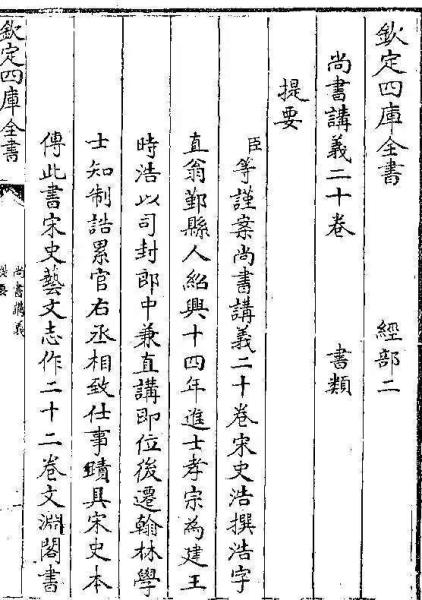 欽定四庫全書　經部二
尚書講義二十卷　書類
提要
臣等謹案尚書講義二十卷宋史浩撰浩字
直翁鄞縣人紹興十四年進士孝宗為建王
時浩以司封郎中兼直講即位後遷翰林學
士知制誥累官右丞相致仕事蹟具宋史本
傳此書宋史藝文志作二十二卷文淵閣書
欽定四庫全書
尚書講義
提要
一